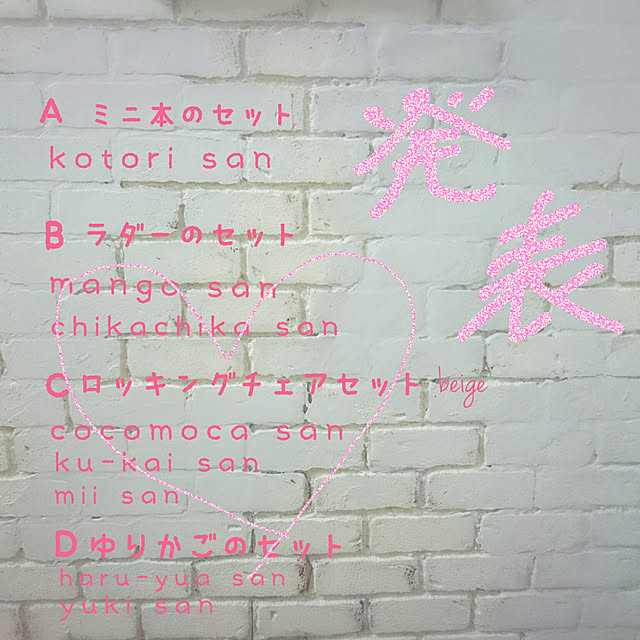 発表
A ミニ本のセット
kotori san
B ラダーのセット
mango san
chikachika san
C ロッキングチェアセット beige
cocomoca san
ku-kai san
mii san
D ゆりかごのセット
haru-yua san
yuki san